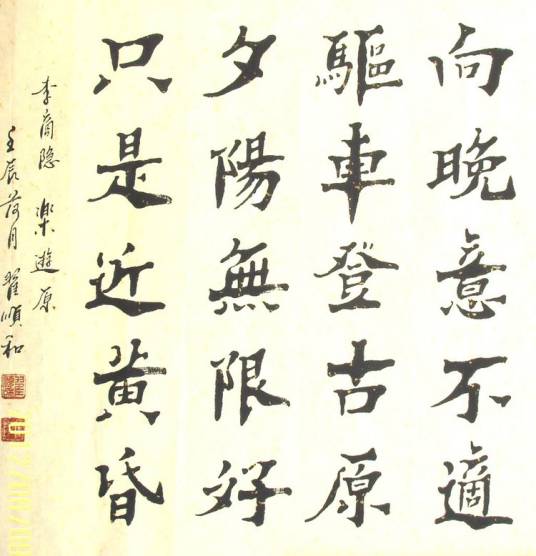 向晚意不適
驅車登古原
夕陽無限好
只是近黃昏
李商隐 樂遊原
壬辰荷月 翟順和